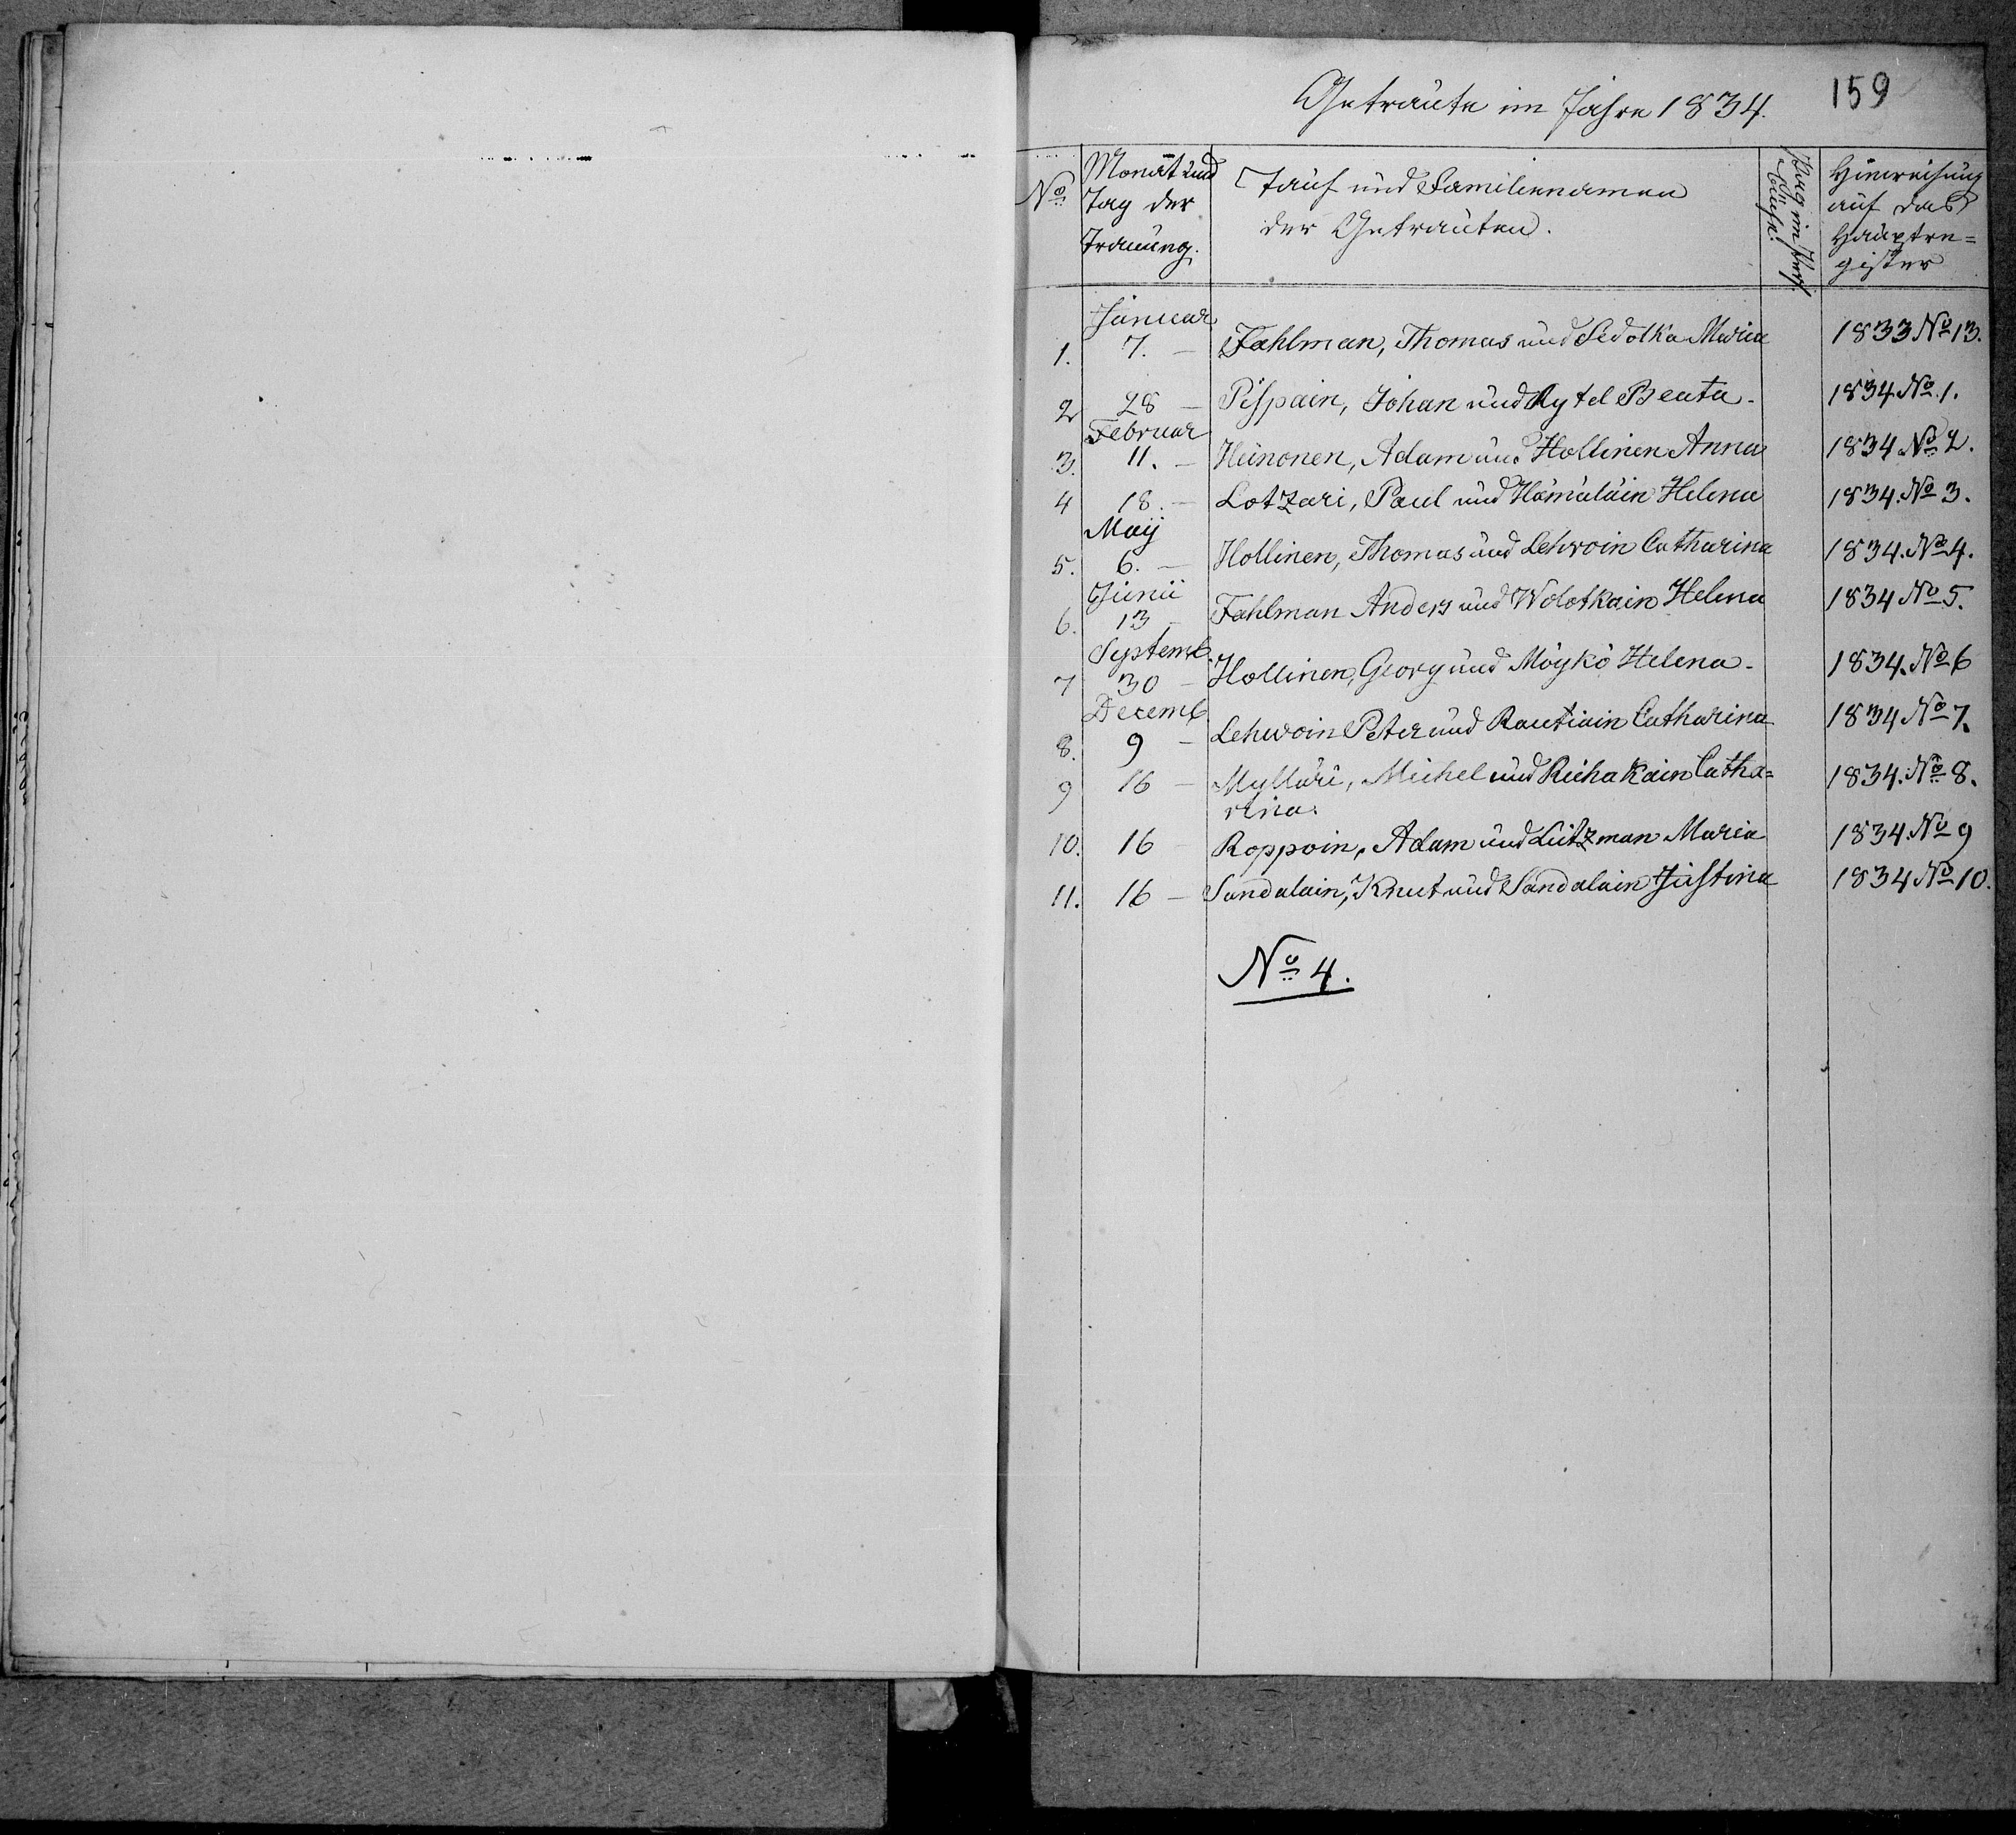 159
Getraute im Jahre 1834.
No Monat und Tag der Trauung. Tauf und Familiennamen der Getrauten. Pag im Pers. Buche. Hinweisung auf das Hauptre=gister
Januar
1. 7. – Fahlman, Thomas und Sedolka Maria 1833 No 13.
2 28 – Pispain, Johan und Rytel Beata. 1834 No 1.
Februar
3. 11. – Heinonen, Adam und Hollinen Anna 1834 No 2.
4 18. – Lotzari, Paul und Hämäläin Helena 1834. No 3.
Maÿ
5. 6. – Hollinen, Thomas und Lehvoin Catharina 1834. No 4.
Junii
6. 13 – Fahlman Anders und Wolotkain Helena 1834 No 5.
Septemb.
7 30 – Hollinen, Georg und Möykö Helena. 1834. No 6
Decemb.
8. 9 – Lehwoin Peter und Rautiain Catharina 1834 No 7.
9 16 – Mylläri, Michel und Riehakain Catha= 1834. No 8.
rina.
10. 16 Roppoin, Adam und Lutzman Maria 1834. No 9
11. 16 – Sandalain, Knut und Sandalain Justina 1834 No 10.
No 4.